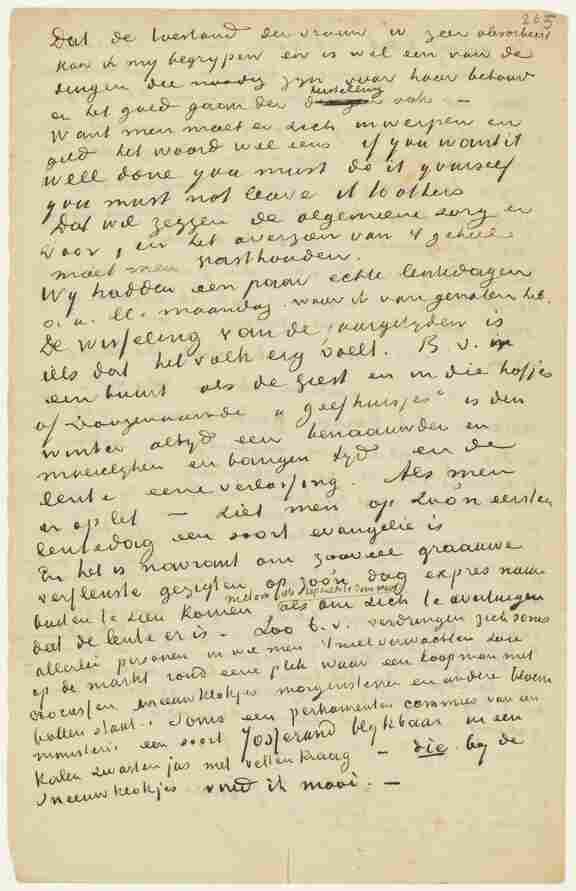 265
Dat de toestand der vrouw U zeer absorbeert
kan ik my begrypen en is wel een van de
dingen die noodig zyn voor haar behoud
en het goed gaan der herstelling ook –
Want men moet er zich inwerpen en
geld het woord wel eens if you want it
well done you must do it yourself
you must not leave it to others
Dat wil zeggen de algemeene zorg er
voor, en het overzien van 't geheel
moet men vasthouden.
Wy hadden een paar echte lentedagen
o.a. ll. maandag waar ik van genoten heb.
De wisseling van de jaargetyden is
iets dat het volk erg voelt. B.v. in
een buurt als de Geest en in die hofjes
of zoogenaamde „geefhuisjes" is den
winter altyd een benaauwden en
moeielyken en bangen tyd en de
lente eene verlossing. Als men
er op let – ziet men op zoo'n eersten
lentedag een soort evangelie is
En het is navrant om zooveel graauwe
verfletste gezigten op zoo'n dag expres naar
buiten te zien komen als om zich te overtuigen
dat de lente er is. Zoo b.v. verdringen zich soms
allerlei personen in wie men 't niet verwachten zou
op de markt rond eene plek waar een koopman met
crocussen sneeuwklokjes morgensterren en andere bloem
bollen staat. Soms een perkamenten commies van een
ministerie een soort Josserand blykbaar in een
kalen zwarten jas met vetten kraag – die by de
sneeuwklokjes vind ik mooi. –